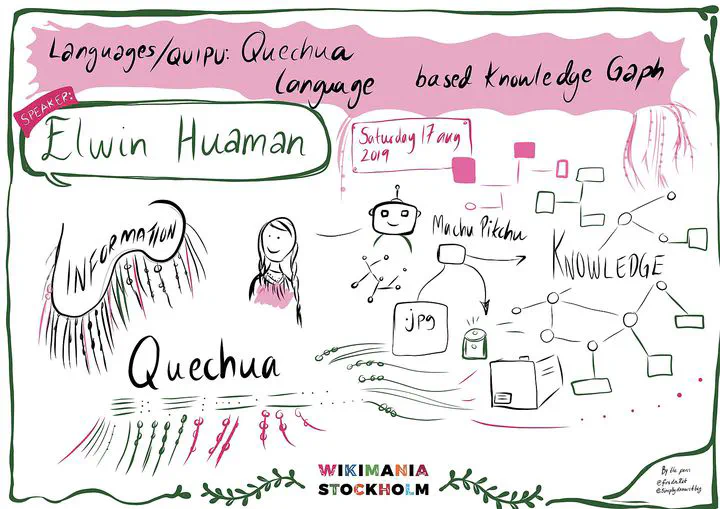 Languages/QUIPU: Quechua
language based Knowledge Gaph
SPEAKER:
Elwin Huaman
Saturday 17 aug
2019
INFORMATION
Machu Pikchu
KNOWLEDGE
.jpg
Quechua
WIKIMANIA
STOCKHOLM
By the pen